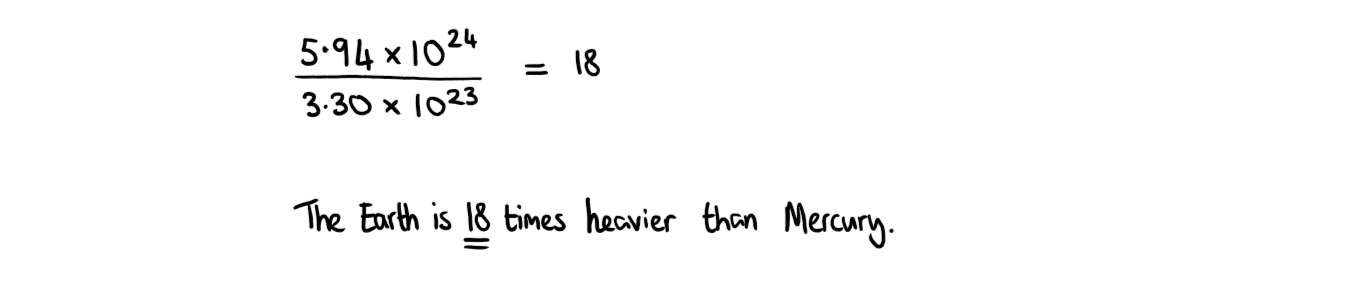 5·94 × 10²⁴
3·30 × 10²³
= 18
The Earth is 18 times heavier than Mercury.